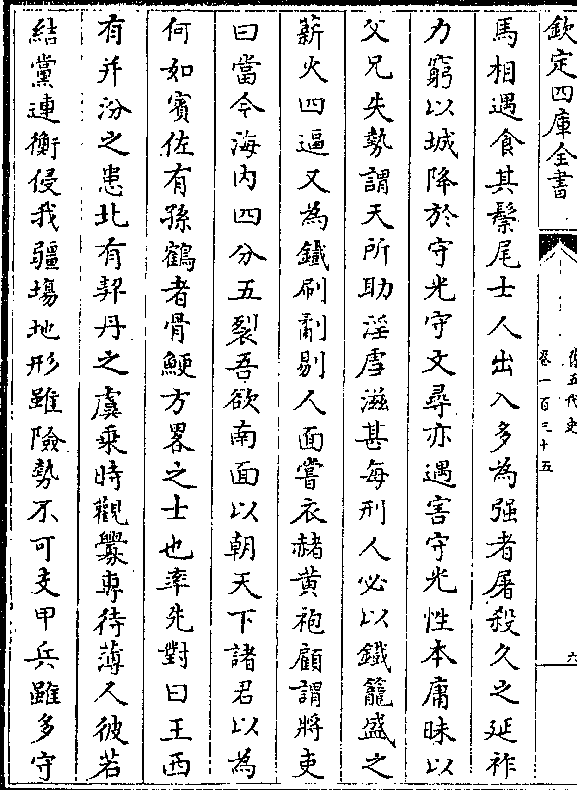 欽定四庫全書
舊五代史
卷一百三十五
六
馬相遇食其鬃尾士人出入多為强者屠殺久之延祚
力窮以城降於守光守文尋亦遇害守光性本庸昧以
父兄失勢謂天所助淫虐滋甚每刑人必以鐵籠盛之
薪火四逼又為鐵刷劀剔人面嘗衣赭黄袍顧謂將吏
曰當今海内四分五裂吾欲南面以朝天下諸君以為
何如賓佐有孫鶴者骨鯁方畧之士也率先對曰王西
有并汾之患北有契丹之虞乗時觀釁専待薄人彼若
結黨連衡侵我疆場地形雖險勢不可支甲兵雖多守